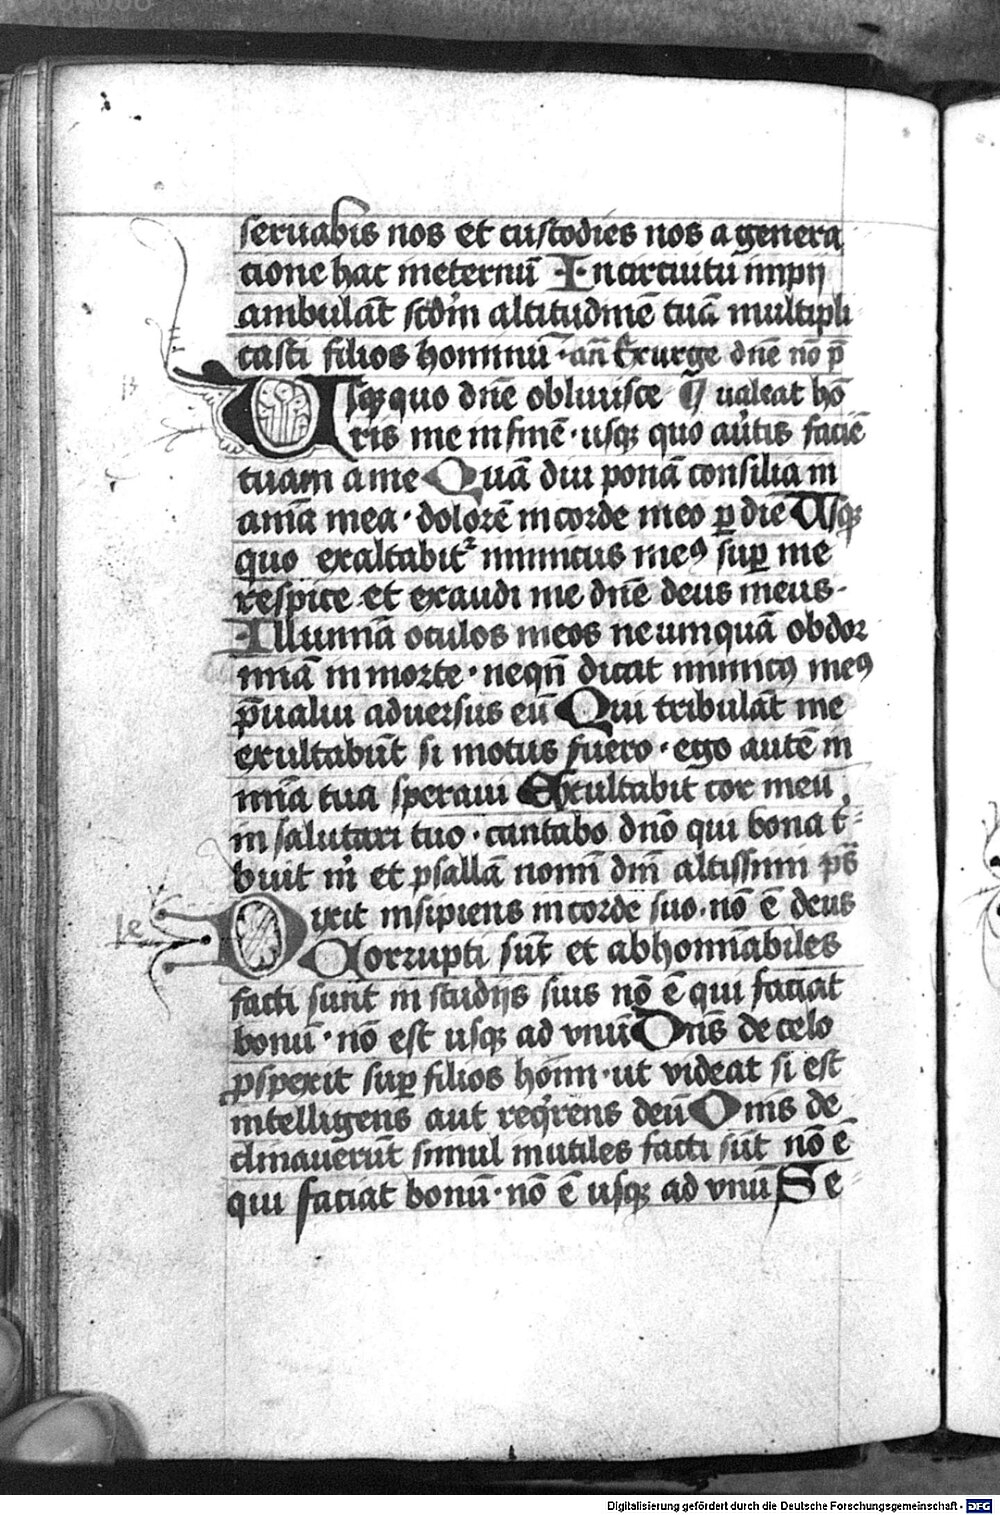 seruabis nos et custodies nos a genera
cione hac ineternū In circuitu impij
ambulāt scdm̄ altitudinē tuā multipli
casti filios hominū · an̄ Exurge dn̄e nō p̄
Usq̄ quo dn̄e obliuisce
ris me in finē · usq̄ quo au̾tis faciē
tuam a me Quā diu ponā consilia in
aīa mea · dolorē in corde meo ꝑ diē Usq̄
quo exaltabit̾ inimicus meꝰ suꝑ me
respice et exaudi me dn̄e deus meus ·
Illumīa oculos meos ne umquā obdor
miā in morte · neqn̄ dicat inimicꝰ meꝰ
p̄ualui aduersus eū Qui tribulāt me
exultabūt si motus fuero · ego autē in
mīa tua speraui Exultabit cor meū
in salutari tuo · cantabo dn̄o qui bona t̾
buit m̄ et psallā nomī dn̄i altissimi ps̄
Dixit insipiens in corde suo · nō ē deus
Corrupti sūt et abhomīabiles
facti sunt in studijs suis nō ē qui faciat
bonū · nō est usq̄ ad vnū Dn̄s de celo
ꝓspexit suꝑ filios hōim · ut videat si est
intelligens aut req̾rens deū Om̄s de
clinauerūt simul inutiles facti sūt nō ē
qui faciat bonū · nō ē usq̄ ad vnū Se
Digitalisierung gefördert durch die Deutsche Forschungsgemeinschaft - DFG